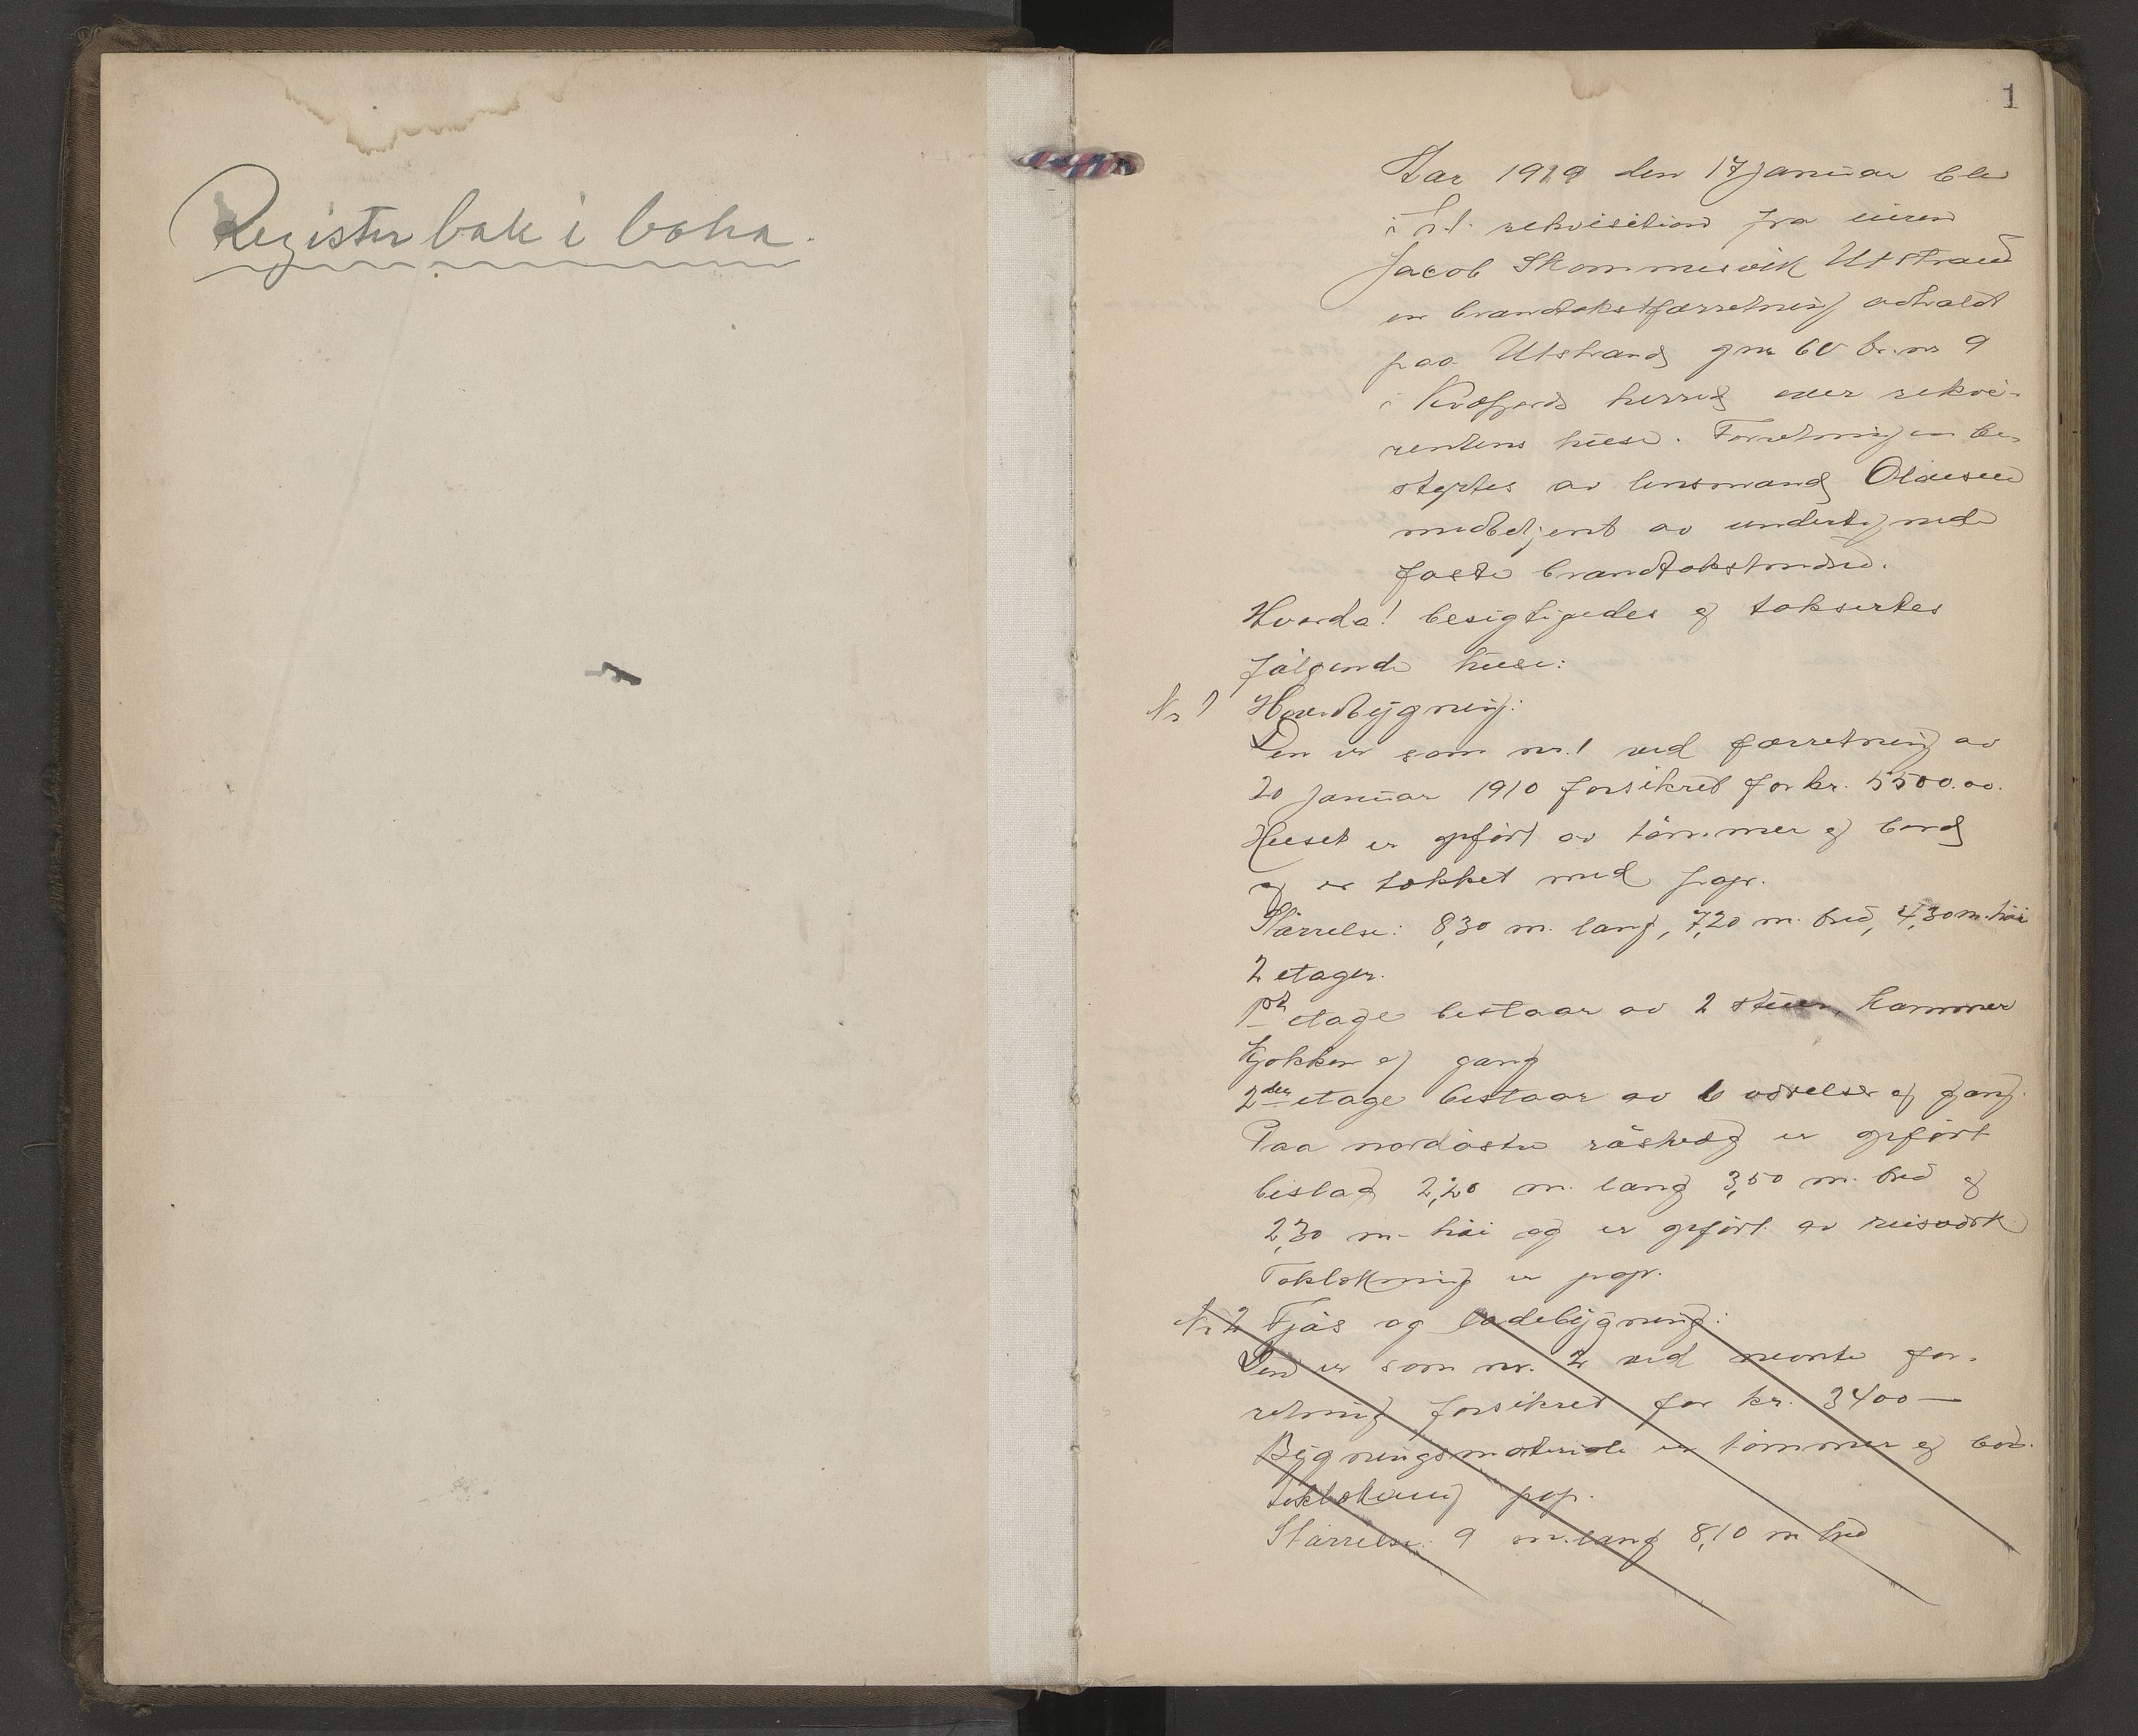 Register bak i boka.
1
Aar 1919 den 17 januar blev
i h.t. rekvisition fra eieren
Jacob Skommesvik Utstrand
en brandtakstforretning avholdt
paa Utstrand gnr 60 br. nr 9
i Kvæfjord herred over rekvi-
rentens huse. Forretningen be-
styrtes av lensmand Olausen
medbetjent av undertegnede
faste brandtakstmænd.
Hvorda! besigtigedes og taksertes
følgende huse:
Nr 1 Hovedbygning:
Den er som nr. 1 ved forretning av
20 januar 1910 forsikret for kr. 5500.00.
Huset er opført av tømmer og bord
og er tækket med pap.
Størrelse: 8,30 m. lang, 7,20 m. bred, 4,30 m. høi
2 etager.
1ste etage bestaar av 2 stuer, kammer
kjøkken og gang
2den etage bestaar av 6 værelser og gang.
Paa nordøstre røstvæg er opført
bislag 2,20 m. lang 3,50 m. bred og
2,30 m. høi og er opført av reisverk
Taktækning er pap.
Nr 2 Fjøs og ladebygning:
Den er som nr. 2 ved nævnte for-
retning forsikret for kr. 3400 —
Bygningsmateriale er tømmer og bord.
taktækning pap.
Størrelse: 9 m. lang 8,10 m bred